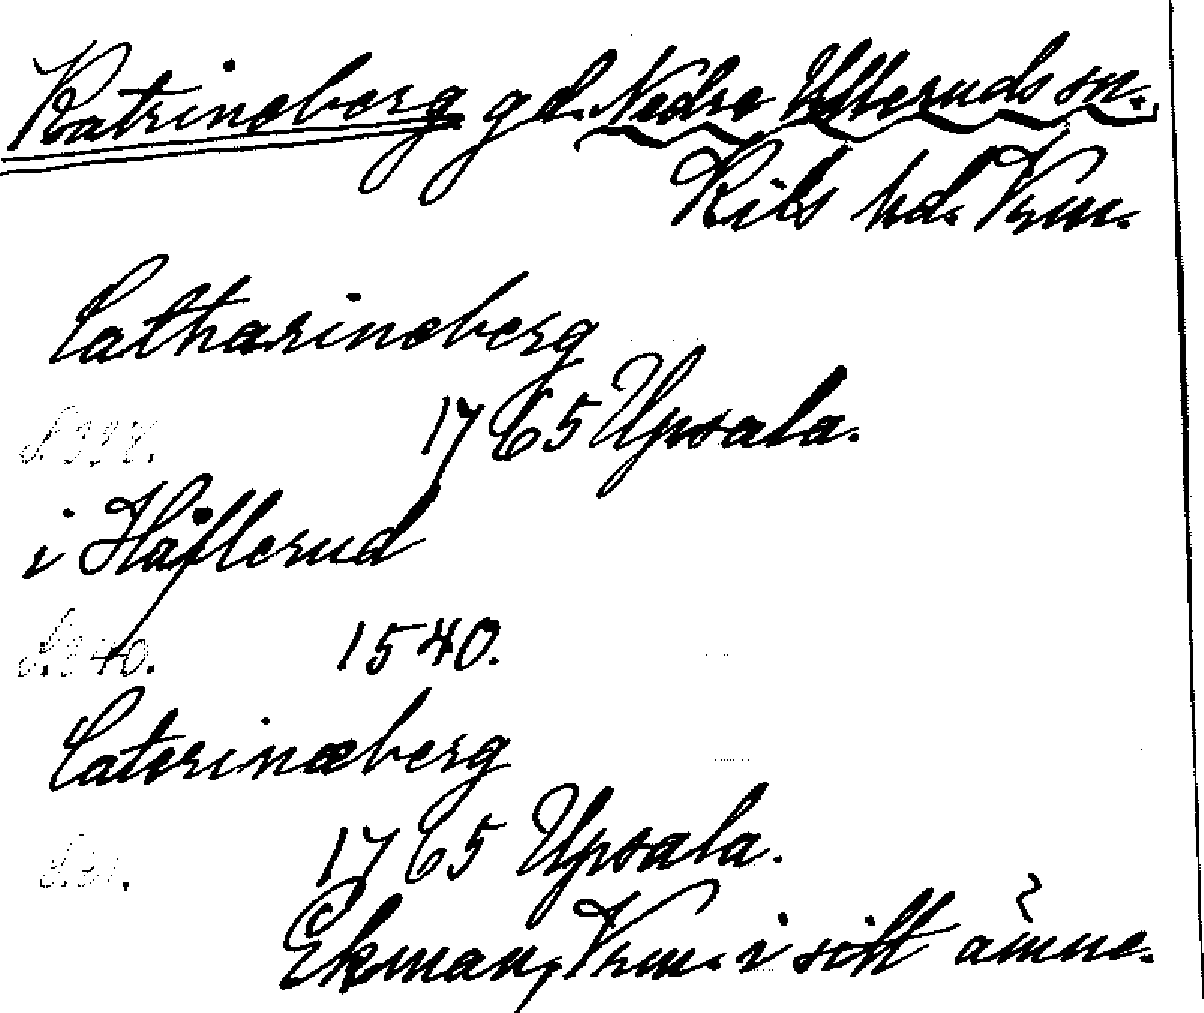 Katrineberg gd. Nedre Ulleruds sn.
Kils hd. Vrm.
Catharineberg
S. 338. 1765 Upsala.
i Håflerud
S. 340. 1540.
Caterinæberg
S. 31. 1765 Upsala.
Ekman, Vrm. i sitt ämne.